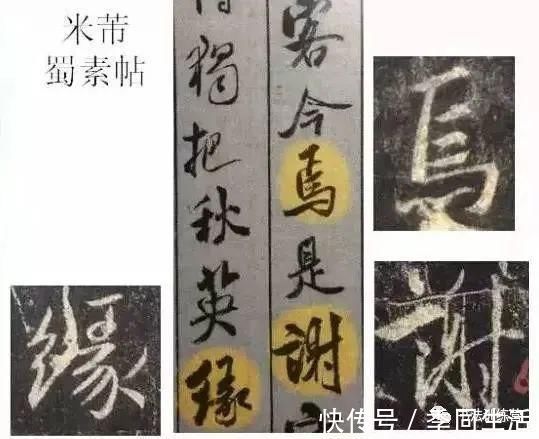 米芾
蜀素帖
客今焉是謝
獨把秋英緣
焉
謝
緣
快传号/